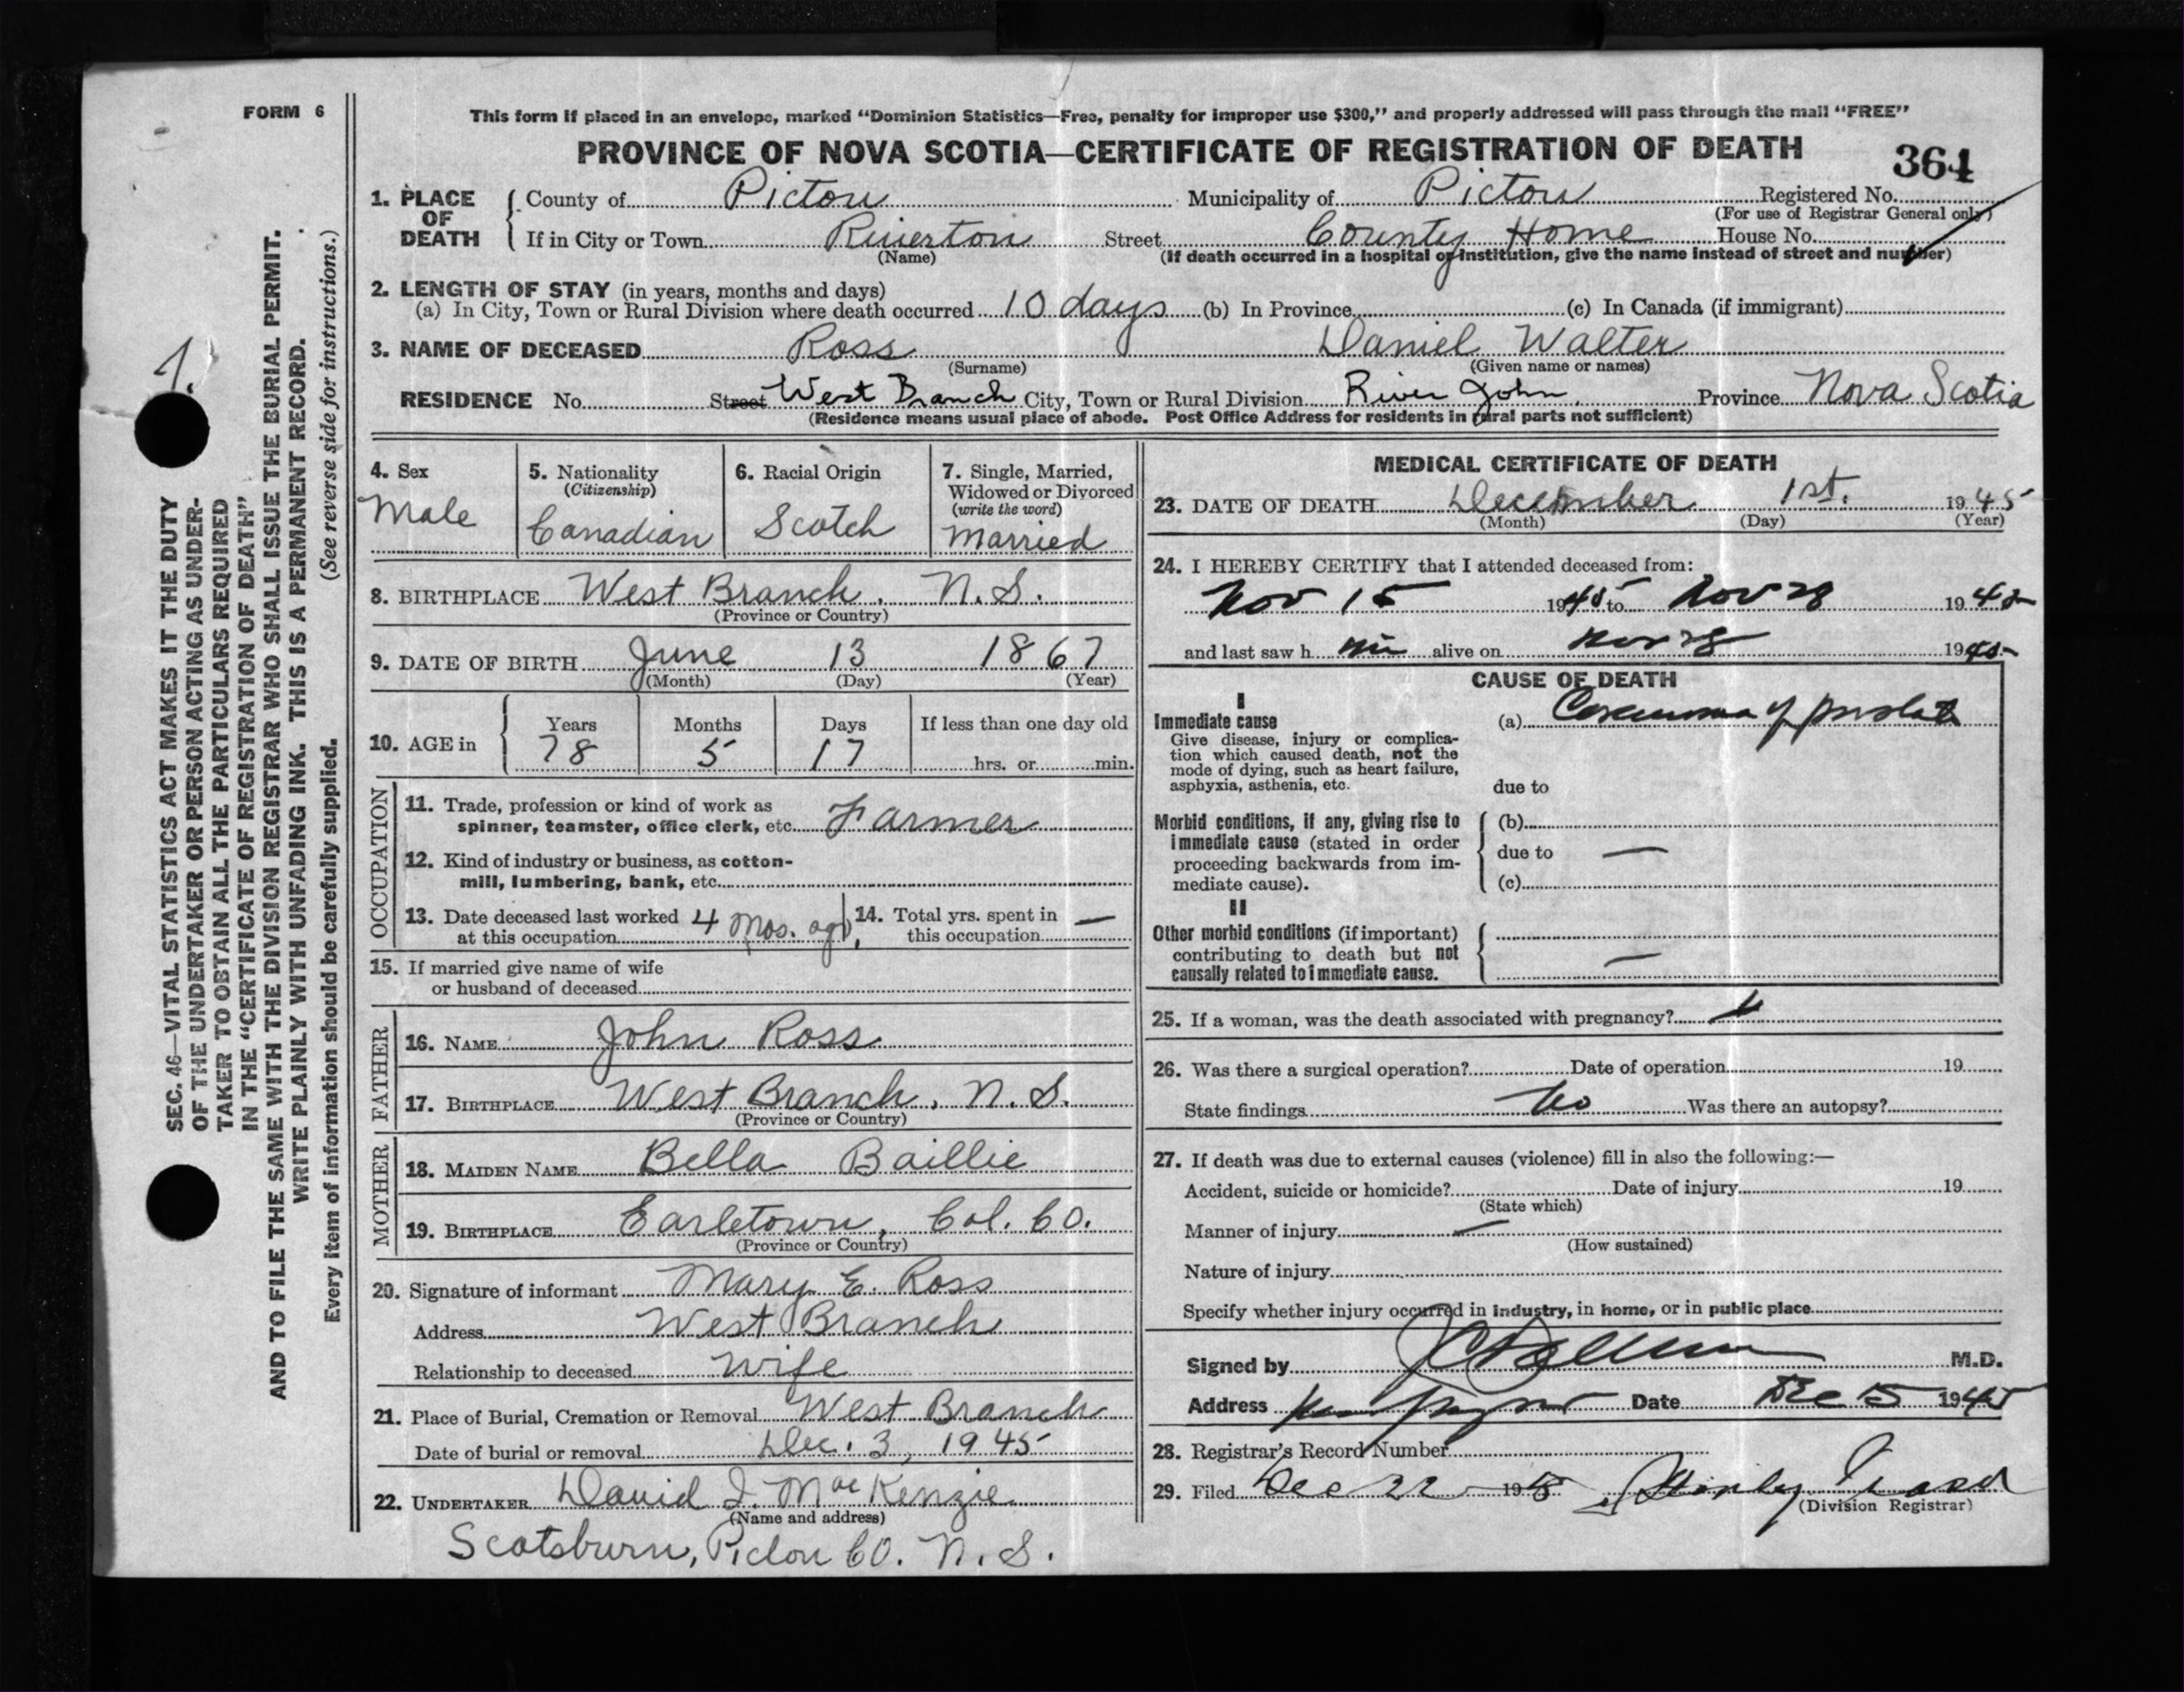 FORM 6
This form if placed in an envelope, marked "Dominion Statistics—Free, penalty for improper use $300," and properly addressed will pass through the mail "FREE"
PROVINCE OF NOVA SCOTIA—CERTIFICATE OF REGISTRATION OF DEATH
364
1. PLACE OF DEATH County of Pictou Municipality of Pictou Registered No.
(For use of Registrar General only)
If in City or Town Riverton Street County Home House No.
(Name) (If death occurred in a hospital or institution, give the name instead of street and number)
2. LENGTH OF STAY (in years, months and days)
(a) In City, Town or Rural Division where death occurred 10 days (b) In Province (c) In Canada (if immigrant)
3. NAME OF DECEASED Ross Daniel Walter
(Surname) (Given name or names)
RESIDENCE No. Street West Branch City, Town or Rural Division River John. Province Nova Scotia
(Residence means usual place of abode. Post Office Address for residents in rural parts not sufficient)
4. Sex
Male
5. Nationality
(Citizenship)
Canadian
6. Racial Origin
Scotch
7. Single, Married,
Widowed or Divorced
(write the word)
Married
8. BIRTHPLACE West Branch, N.S.
(Province or Country)
9. DATE OF BIRTH June 13 1867
(Month) (Day) (Year)
10. AGE in
Years Months Days If less than one day old
78 5 17 hrs. or min.
OCCUPATION
11. Trade, profession or kind of work as
spinner, teamster, office clerk, etc. Farmer
12. Kind of industry or business, as cotton-
mill, lumbering, bank, etc.
13. Date deceased last worked
at this occupation 4 Mos. ago
14. Total yrs. spent in
this occupation —
15. If married give name of wife
or husband of deceased
FATHER
16. NAME John Ross
17. BIRTHPLACE West Branch, N.S.
(Province or Country)
MOTHER
18. MAIDEN NAME Bella Baillie
19. BIRTHPLACE Earletown, Col. Co.
(Province or Country)
20. Signature of informant Mary E. Ross
Address West Branch
Relationship to deceased Wife
21. Place of Burial, Cremation or Removal West Branch
Date of burial or removal Dec. 3, 1945
22. UNDERTAKER David I. MacKenzie
(Name and address)
Scotsburn, Pictou Co. N.S.
MEDICAL CERTIFICATE OF DEATH
23. DATE OF DEATH December 1st. 1945
(Month) (Day) (Year)
24. I HEREBY CERTIFY that I attended deceased from:
Nov 15 1945 to Nov 28 1945
and last saw h im alive on Nov 28 1945
CAUSE OF DEATH
I
Immediate cause
Give disease, injury or complica-
tion which caused death, not the
mode of dying, such as heart failure,
asphyxia, asthenia, etc.
(a) Carcinoma of prostate
due to
Morbid conditions, if any, giving rise to
immediate cause (stated in order
proceeding backwards from im-
mediate cause).
(b)
due to —
(c)
II
Other morbid conditions (if important)
contributing to death but not
causally related to immediate cause.
—
25. If a woman, was the death associated with pregnancy?
26. Was there a surgical operation? Date of operation 19
State findings No Was there an autopsy?
27. If death was due to external causes (violence) fill in also the following:—
Accident, suicide or homicide? Date of injury 19
(State which)
Manner of injury —
(How sustained)
Nature of injury
Specify whether injury occurred in industry, in home, or in public place
Signed by M.D.
Address Date Dec 15 1945
28. Registrar's Record Number
29. Filed Dec 22 1945 Stanley
(Division Registrar)
1.
SEC. 46—VITAL STATISTICS ACT MAKES IT THE DUTY
OF THE UNDERTAKER OR PERSON ACTING AS UNDER-
TAKER TO OBTAIN ALL THE PARTICULARS REQUIRED
IN THE "CERTIFICATE OF REGISTRATION OF DEATH"
AND TO FILE THE SAME WITH THE DIVISION REGISTRAR WHO SHALL ISSUE THE BURIAL PERMIT.
WRITE PLAINLY WITH UNFADING INK. THIS IS A PERMANENT RECORD.
Every item of information should be carefully supplied. (See reverse side for instructions.)